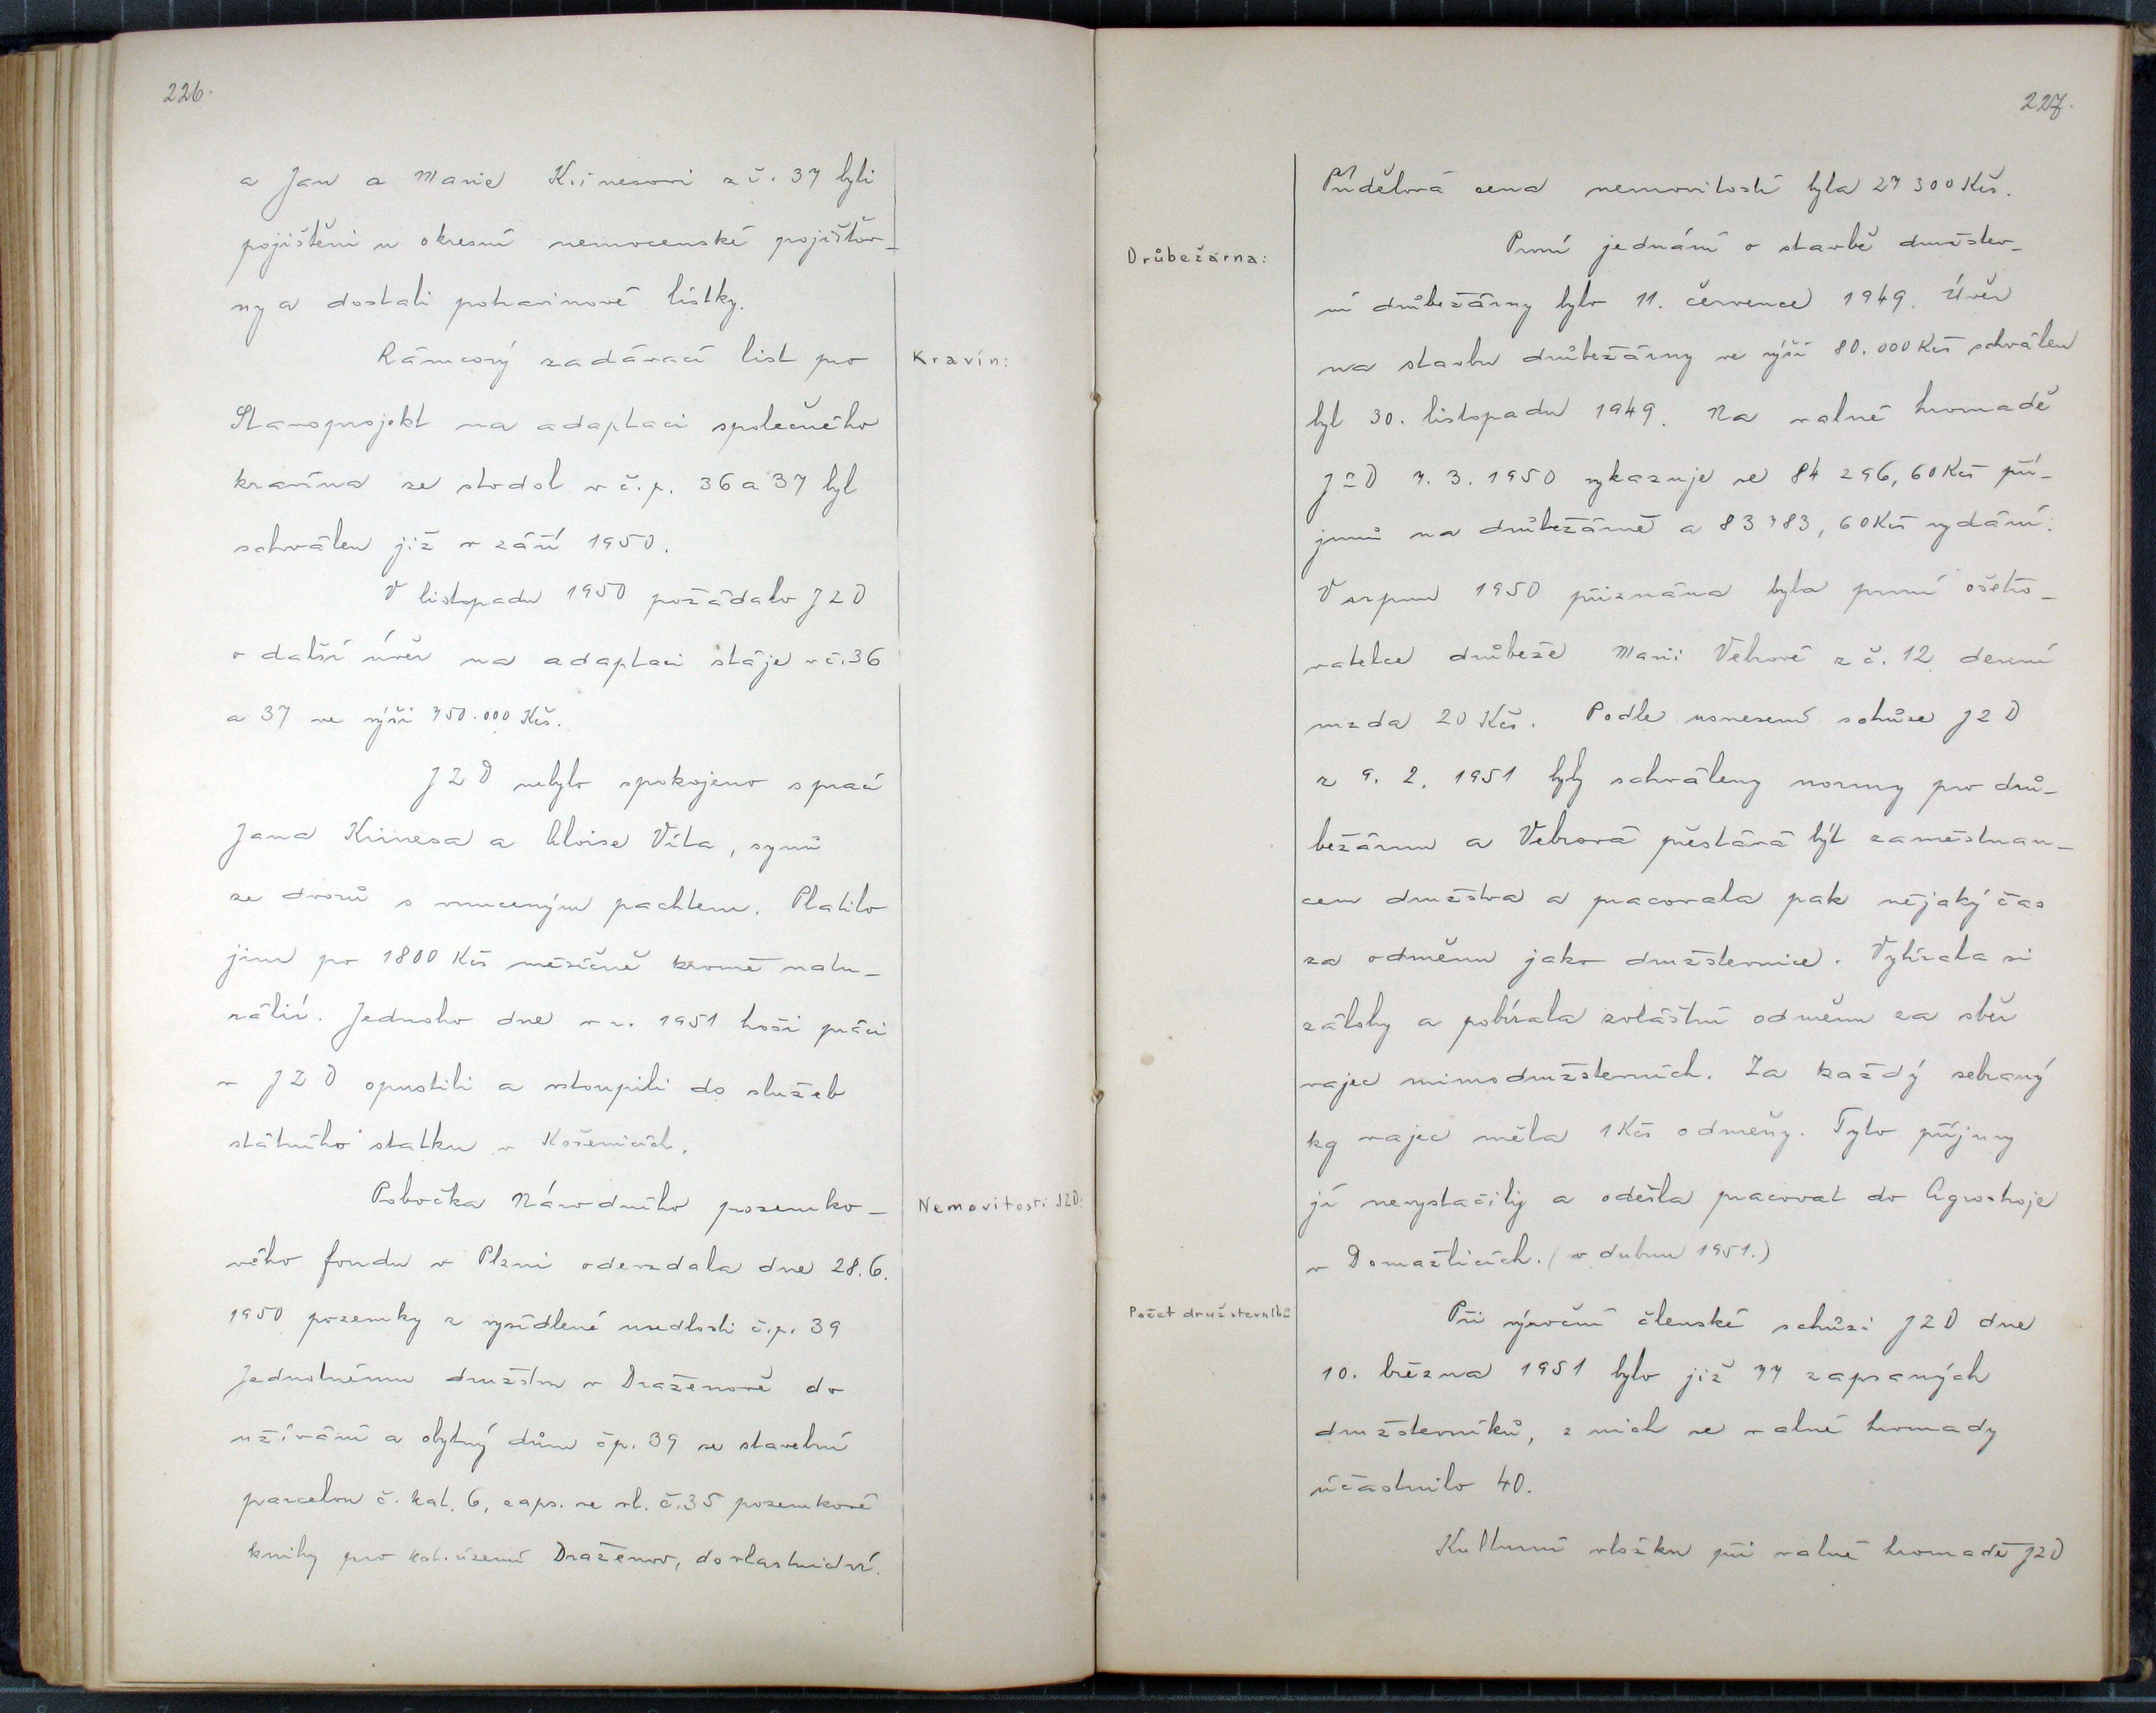 226.
a Jan a Marie Křinesovi z č. 37 byli
pojištěni u okresní nemocenské pojišťov-
ny a dostali potravinové lístky.
Kravín:
Rámcový zadávací list pro
Stavoprojekt na adaptaci společného
kravína ze stodol v č.p. 36 a 37 byl
schválen již v září 1950.
V listopadu 1950 požádalo JZD
o další úvěr na adaptaci stáje v č. 36
a 37 ve výši 750.000 Kčs.
JZD nebylo spokojeno s prací
Jana Křinesa a Aloise Víta, synů
ze dvorů s vnuceným pachtem. Platilo
jim po 1800 Kčs měsíčně kromě natu-
rálií. Jednoho dne v r. 1951 hoši práci
v JZD opustili a vstoupili do služeb
státního statku v Košenicích.
Nemovitosti JZD:
Pobočka Národního pozemko-
vého fondu v Plzni odevzdala dne 28.6.
1950 pozemky z vysídlené usedlosti č.p. 39
Jednotnému družstvu v Draženově do
užívání a obytný dům čp. 39 se stavební
parcelou č. kat. 6, zaps. ve vl. č. 35 pozemkové
knihy pro kat. území Draženov, do vlastnictví.
227.
Přídělová cena nemovitostí byla 27 300 Kčs.
Drůbežárna:
První jednání o stavbě družstev-
ní drůbežárny bylo 11. července 1949. Úvěr
na stavbu drůbežárny ve výši 80.000 Kčs schválen
byl 30. listopadu 1949. Na valné hromadě
JZD 7. 3. 1950 vykazuje se 84 296,60 Kčs pří-
jmů na drůbežárně a 83783,60 Kčs vydání.
V srpnu 1950 přiznána byla první ošetřo-
vatelce drůbeže Marii Vebrové z č. 12 denní
mzda 20 Kčs. Podle usnesení schůze JZD
z 9. 2. 1951 byly schváleny normy pro drů-
bežárnu a Vebrová přestává být zaměstnan-
cem družstva a pracovala pak nějaký čas
za odměnu jako družstevnice. Vybírala si
zálohy a pobírala zvláštní odměnu za sběr
vajec mimodružstevních. Za každý sebraný
kg vajec měla 1 Kčs odměny. Tyto příjmy
jí nevystačily a odešla pracovat do Agrostroje
v Domažlicích. (v dubnu 1951.)
Počet družstevníků
Při výroční členské schůzi JZD dne
10. března 1951 bylo již 77 zapsaných
družstevníků, z nich se valné hromady
účastnilo 40.
Kulturní vložku při valné hromadě JZD